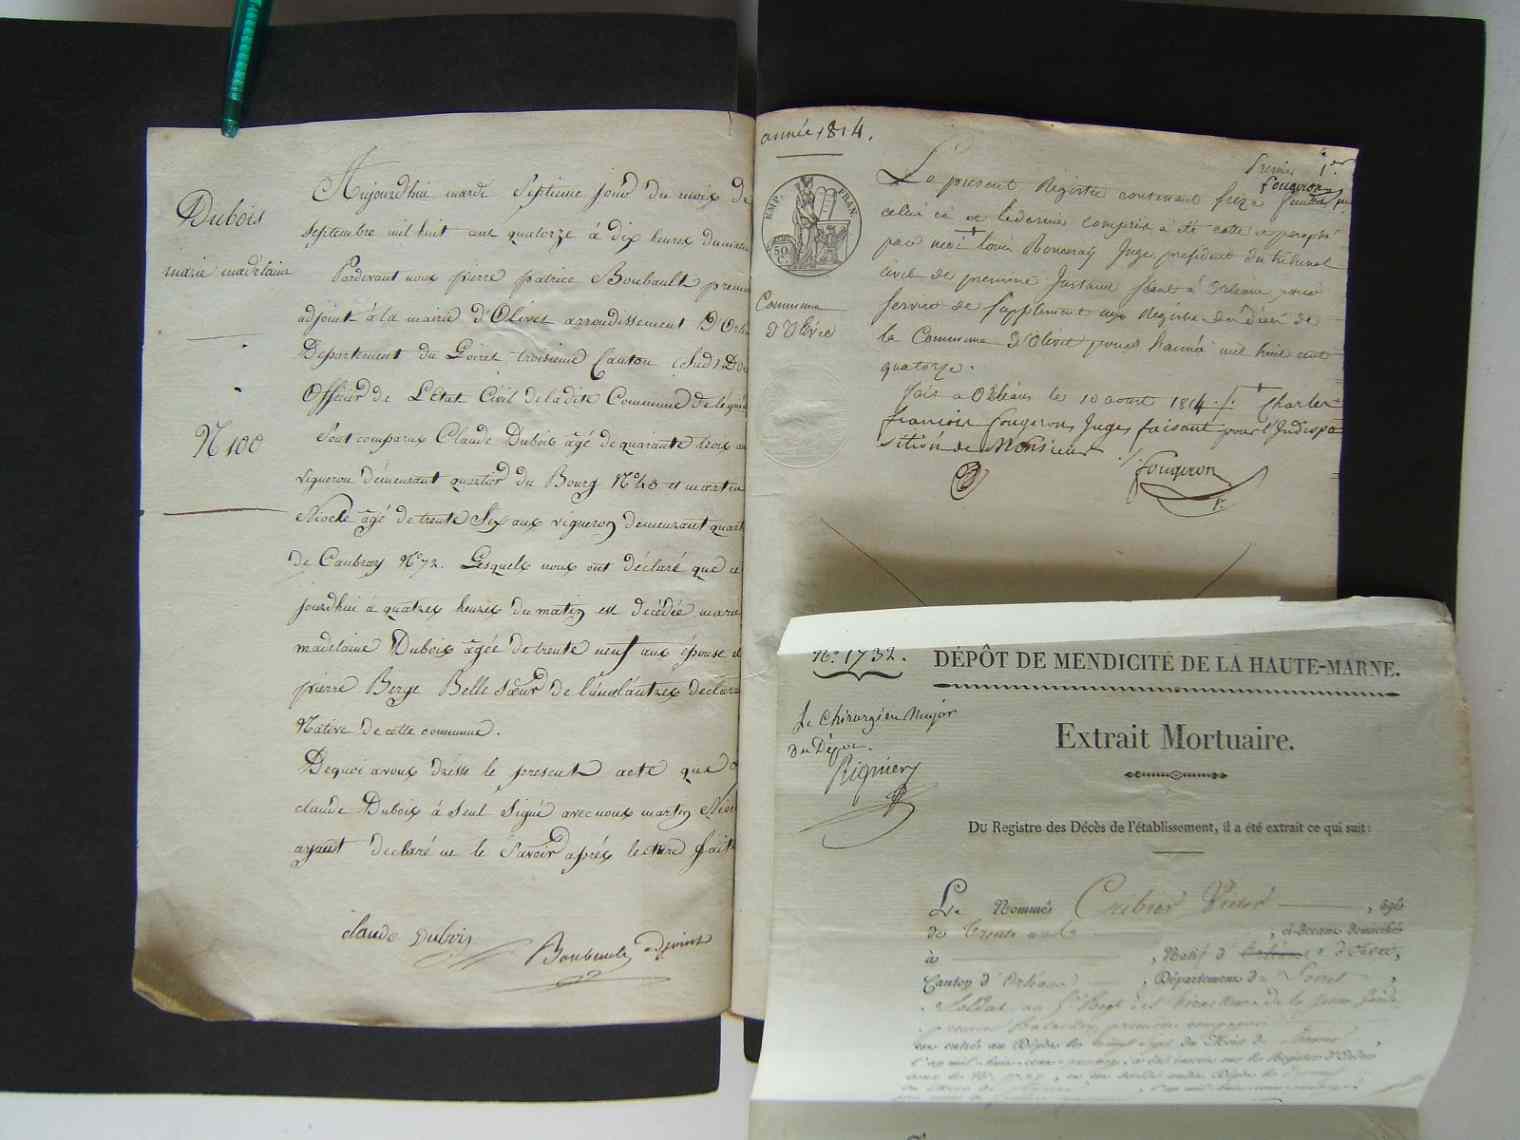 Dubois
marie madelaine
N 100
Aujourdhui mardi Septieme jour du mois de
Septembre mil huit cent quatorze à dix heures du matin
Pardevant nous pierre patrice Boubault premier
adjoint à la mairie d'Olivet arrondissement D'Orl
Departement du Loiret troisieme Canton (Sud)
Officier de L'Etat Civil de la dite Commune
Sont comparus Claude Dubois âgé de quarante trois an
vigneron demeurant quartier du Bourg N° 48 et martin
Nioche âgé de trente Six ans vigneron demeurant quart
de Caubray N° 72. Lesquels nous ont déclaré que ce
jourdhui à quatres heures du matin est decédée marie
madelaine Dubois âgée de trente neuf ans épouse d
pierre Berge Belle Sœur de l'un l'autres declara
Native de cette commune.
De quoi avons dressé le present acte que
claude Dubois à Seul Signé avec nous martin Nio
ayant declaré ne le Savoir après lecture faite
claude Dubois
Boubault adjoint
année 1814.
EMP. FRAN.
50
Commune
d'Olivet
Premier 1er
fougeron
Le present Registre contenant Seize feuillets
celui ci et le dernier compris à été coté et paraphé
par nous Louis Juge president du tribunal
civil de premiere Instance Séant à Orléans pour
Servir de Supplement aux Registres des Décès de
la Commune d'Olivet pour l'année mil huit cent
quatorze.
fait a Orléans le 10 aout 1814 Charles
francois fougeron, Juge, faisant pour l'Indispo
sition de Monsieur
fougeron
N° 1732.
DÉPÔT DE MENDICITÉ DE LA HAUTE-MARNE.
Le Chirurgien Major
du Dépôt.
Extrait Mortuaire.
Du Registre des Décès de l'établissement, il a été extrait ce qui suit:
Le Nommé Cribier Victor, âgé
de trente ans, ci-devant domicilié
à , Natif d'Olivet,
Canton d'Orléans, Département du Loiret,
Soldat au
premier Bataillon premiere compagnie
est entré au Dépôt le vingt sept du Mois de